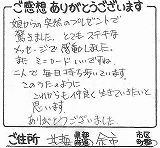 ご感想 ありがとうございます
娘からの突然のプレゼントで
驚きました。とてもステキな
メッセージで感動しました。
また ミニカードいいですね。
二人で毎日持ち歩いています。
このうたように
これからも仲良く生きていきたいと
思います
ありがとうございました。
ご住所 北海 都道府県 余市 市区町村